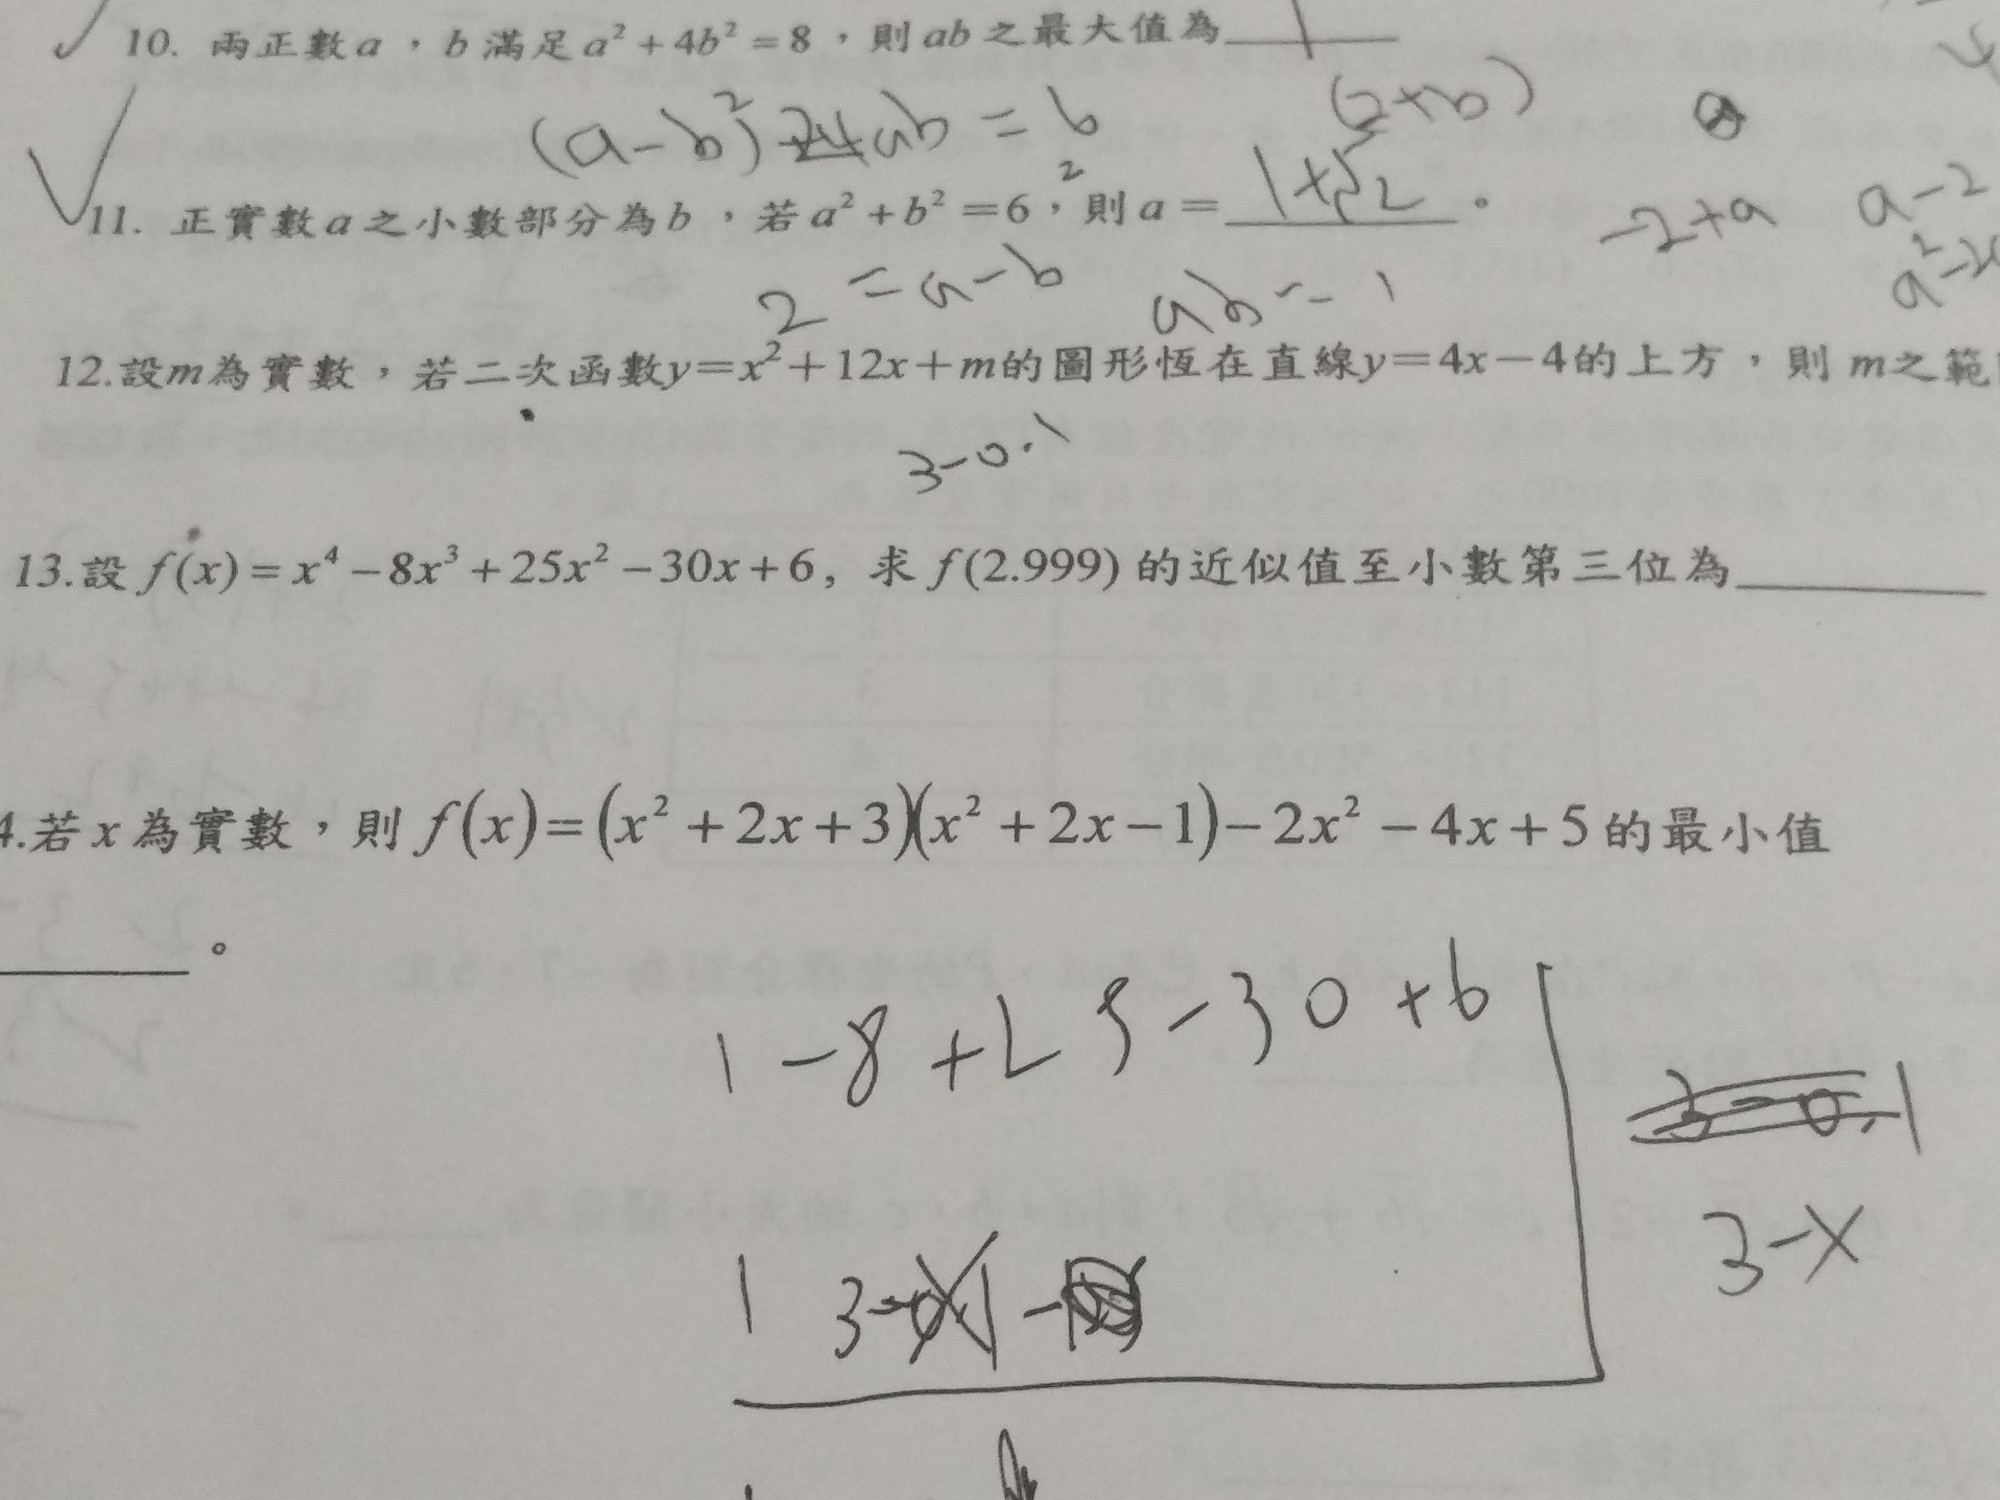 10. 兩正數a，b滿足a²+4b²=8，則ab之最大值為
(a-b)²+ab=6
(2+b)
11. 正實數a之小數部分為b，若a²+b²=6，則a= 1+√2 。
-2+a
a-2
2=a-b
ab=1
12.設m為實數，若二次函數y=x²+12x+m的圖形恆在直線y=4x-4的上方，則 m之範
3-0.1
13.設 f(x)=x⁴-8x³+25x²-30x+6, 求 f(2.999) 的近似值至小數第三位為
4.若x為實數，則 f(x)=(x²+2x+3)(x²+2x-1)-2x²-4x+5的最小值
。
1-8+25-30+6
3-0.1
3-x
1 3